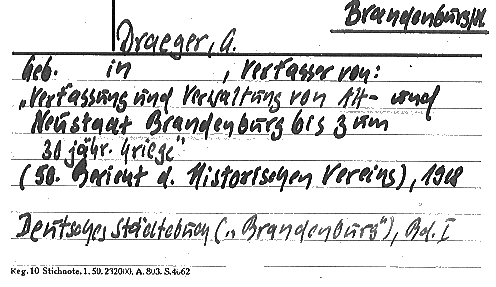 Brandenburg/H.
Draeger, A.
Geb. in , Verfasser von:
„Verfassung und Verwaltung von Alt- und
Neustadt Brandenburg bis zum
30 jähr. Kriege"
(50. Bericht d. Historischen Vereins), 1918
Deutsches Städtebuch („Brandenburg"), Bd. I
Reg. 10 Stichnote. 1. 50. 232000. A. 803. S. 4662